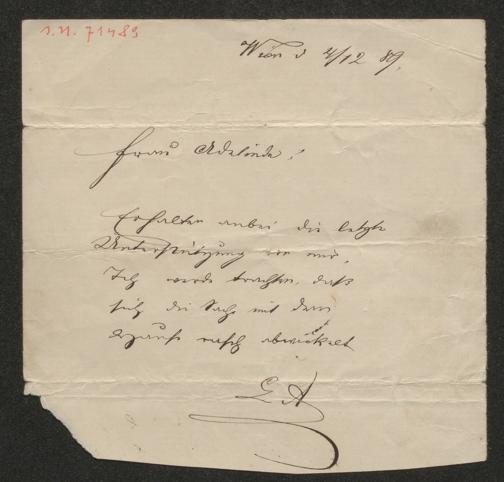 I.N. 71483
Wien d 4/12 89.
Frau Adelinde!
Erhalten anbei die letzte
Unterstützung von mir.
Ich werde trachten, daß
sich die Sache mit dem
Hause rasch abwickelt
L A